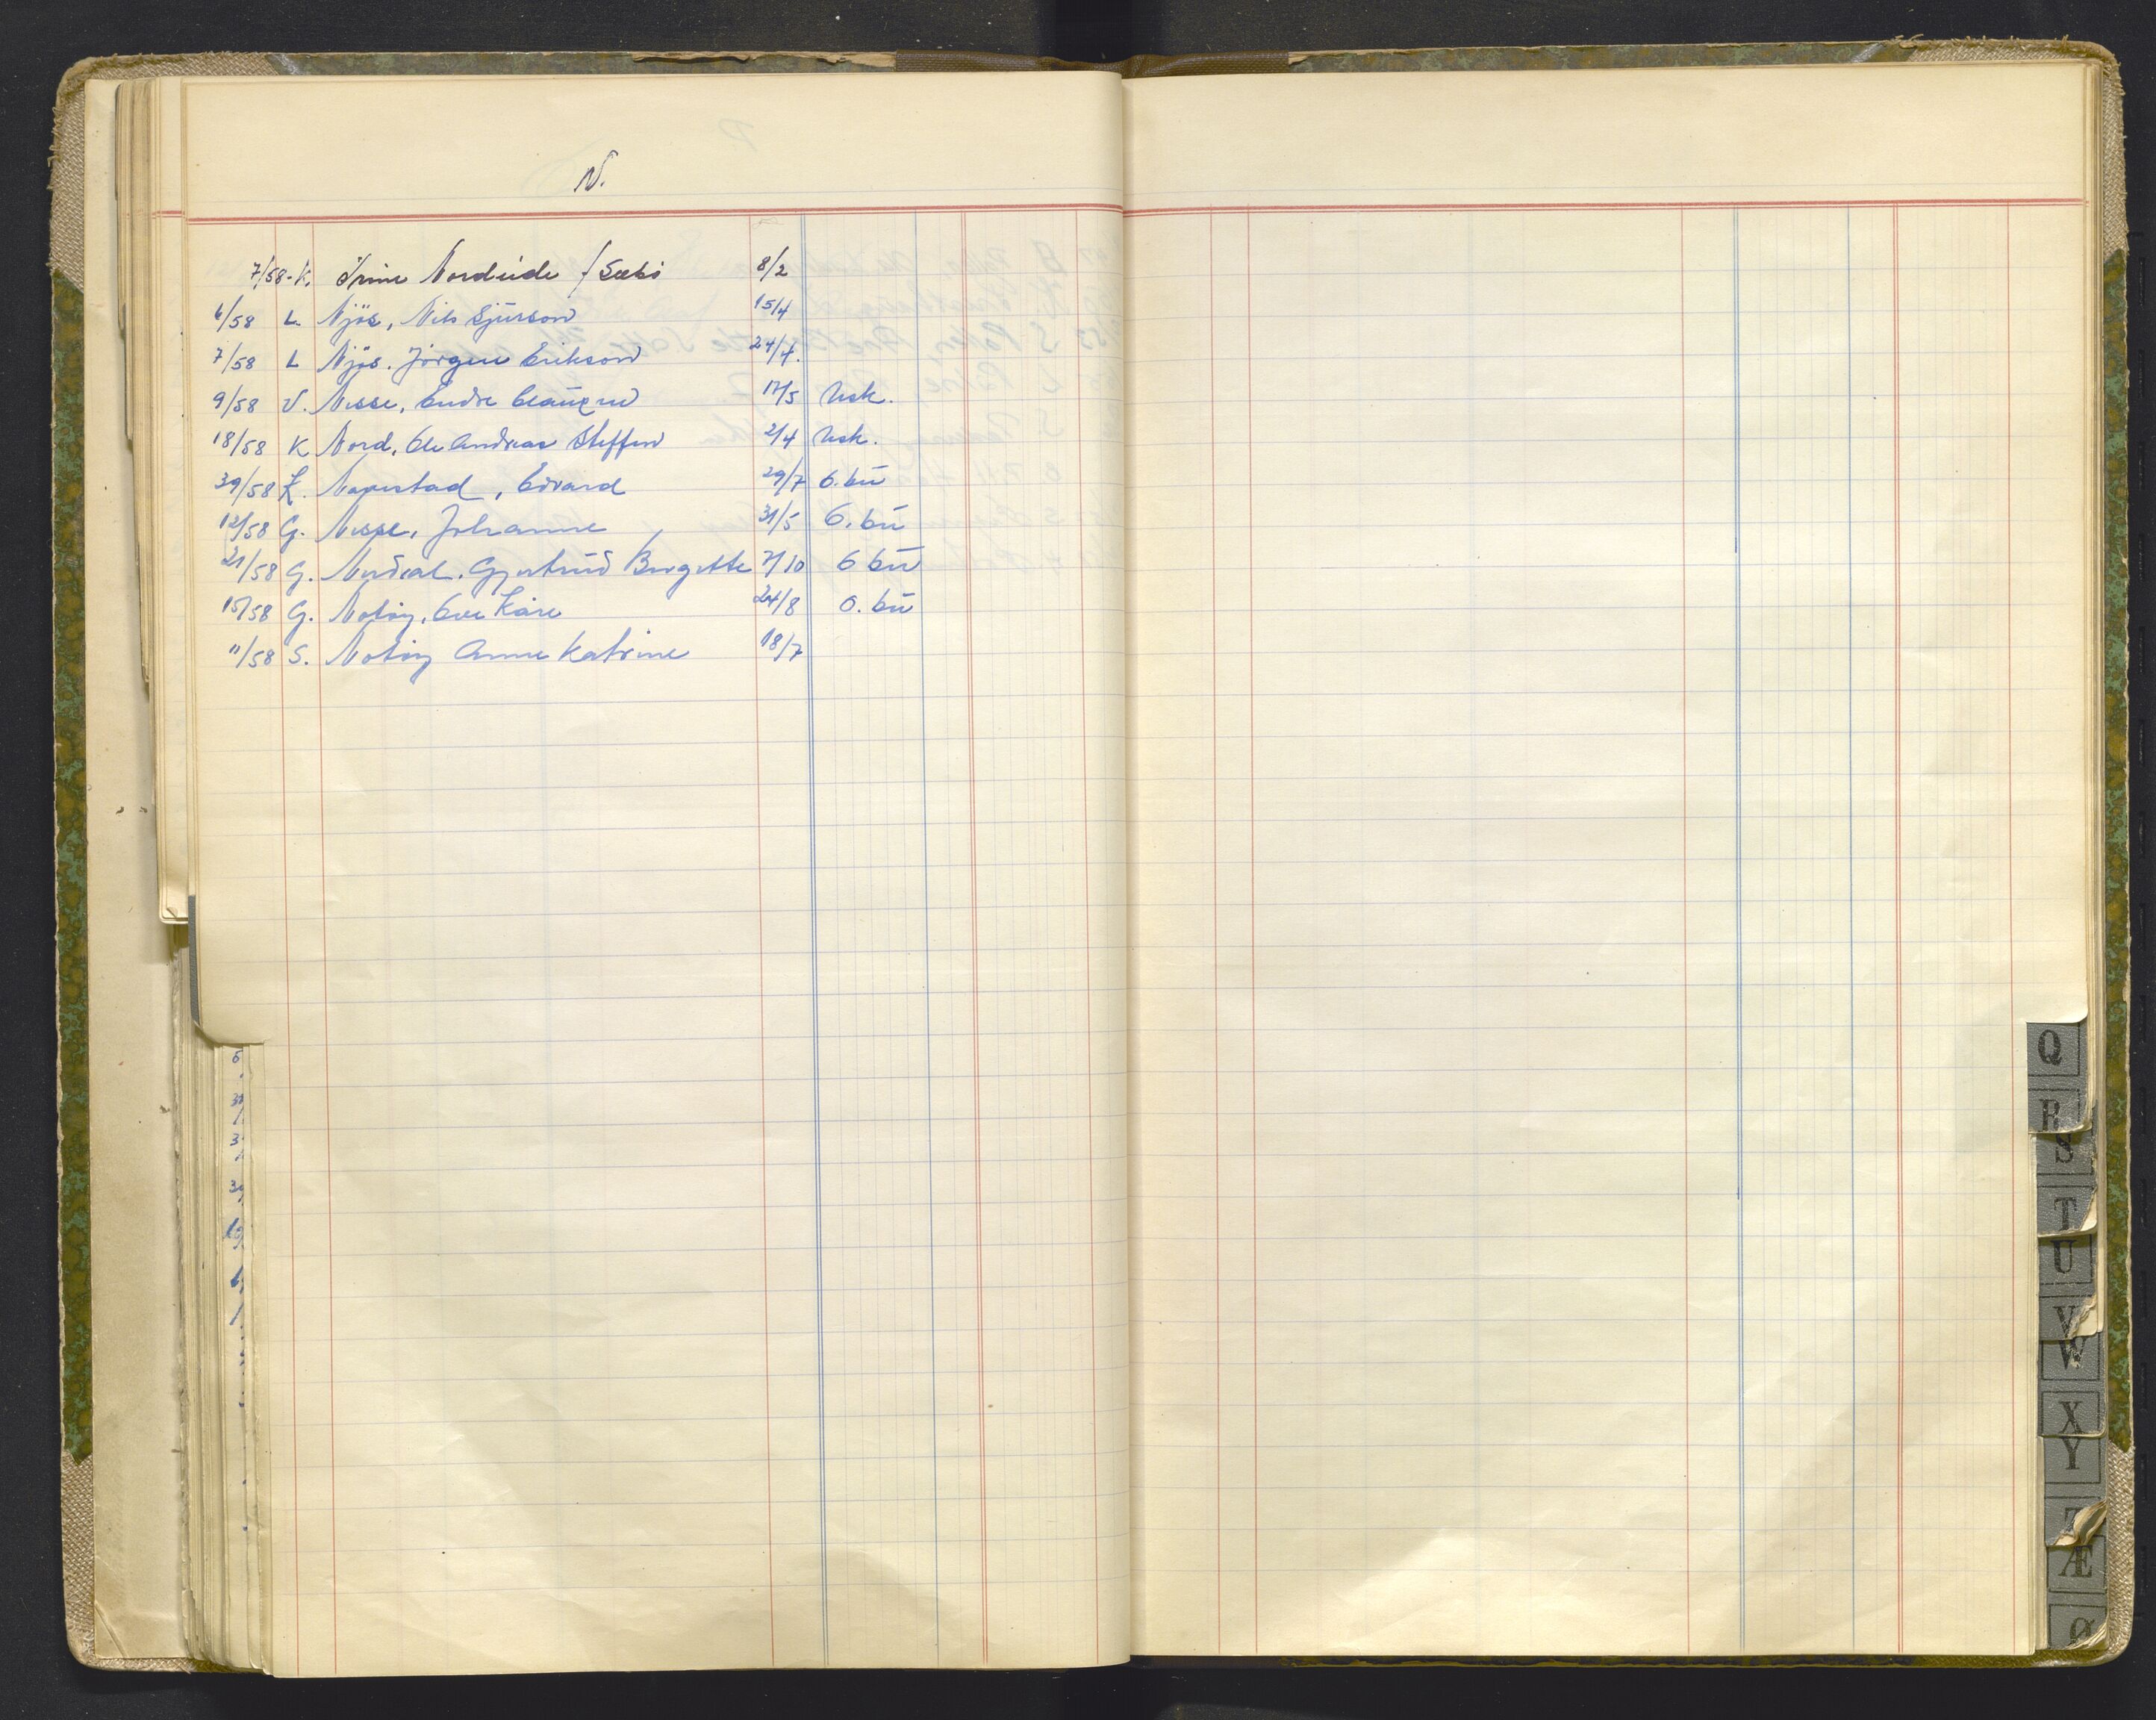 N.
7/58 - K. Irine Nordeide f. Sæbö 8/2
6/58 L. Njös, Nils Sjurson 15/4
7/58 L Njös. Jörgen Erikson 24/4.
9/58 V. Nesse, Endre Clausen 17/5 Usk.
18/58 K Nord, Ole Andreas Steffen 2/4 Usk.
39/58 K. Edvard 29/7 O. bu
12/58 G. Nesse, Johanne 31/5 O. bu
21/58 G. Gjertrud Birgitte 7/10 O bu
15/58 G. Notöy, Kåre 24/8 O. bu
11/58 S. Notöy Anne Katrine 18/7
Q
R
S
T
U
V
W
X
Y
Æ
Ø